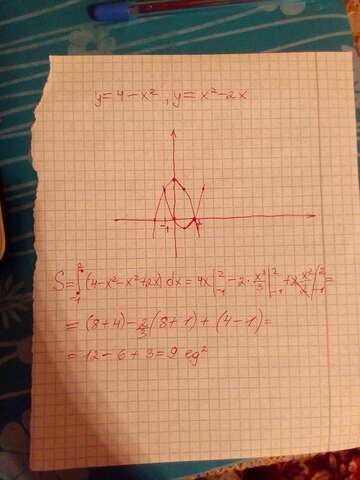 y=4-x², y=x²-2x
-1
2
S=∫₋₁² (4-x²-x²+2x)dx = 4x|₋₁² -2·x³/3|₋₁² +2x²/2|₋₁² =
= (8+4)-2/3(8+1)+(4-1)=
= 12-6+3=9 eg²